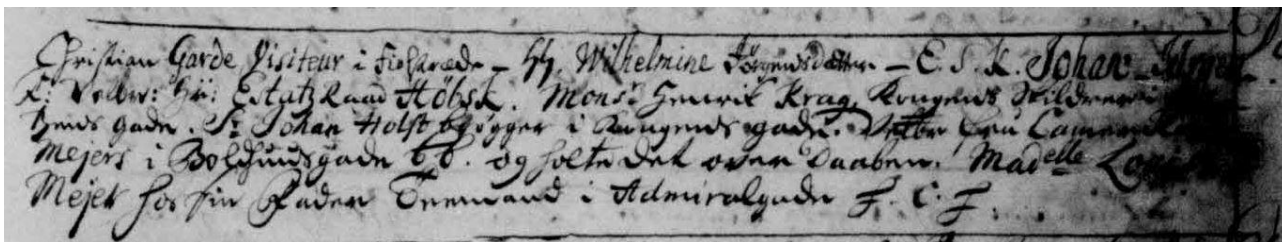 Christian Garde Visiteur i Fiolstræde – H. Wilhelmine Jörgensdatter – E. S. K. Johan Jörgen
F: Vedbr: Hr: EtatzRaad Höbsk. Monsr Henrik Krag, Kongens Skildrer i
gade. Sr Johan Holst brögger i Kongens gade. Vedbr: Fru Camer
Mejers i Boldhuusgade og holte det over Daaben. Madelle
Mejer hos sin Fader Teemand i Admiralgade F. C. F.